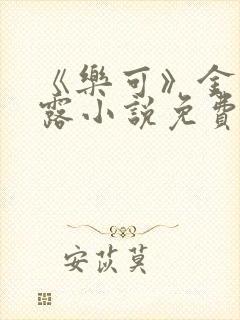 《樂可》金
露小說免費
安苡莫